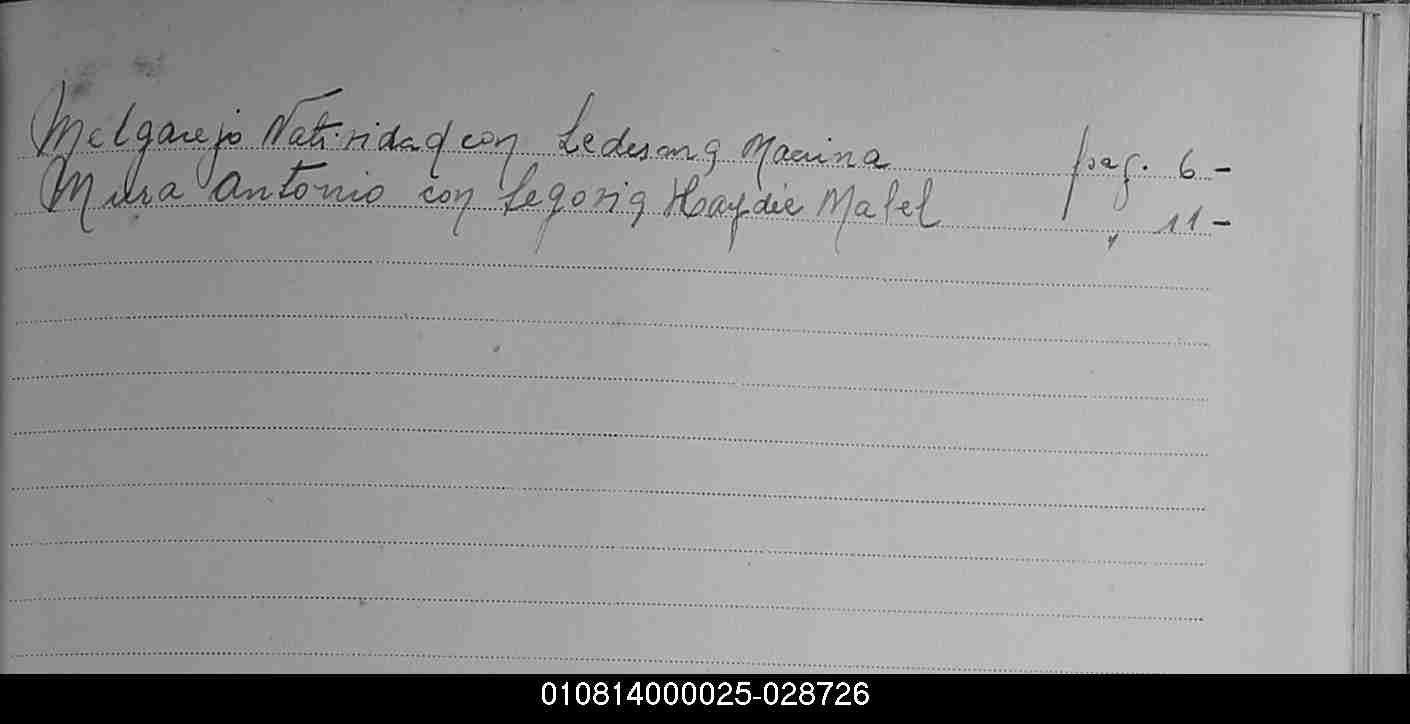 Melgarejo Natividad con Ledesma Macrina pag. 6-
Mura Antonio con Segovia Haydée Mabel " 11-
010814000025-028726